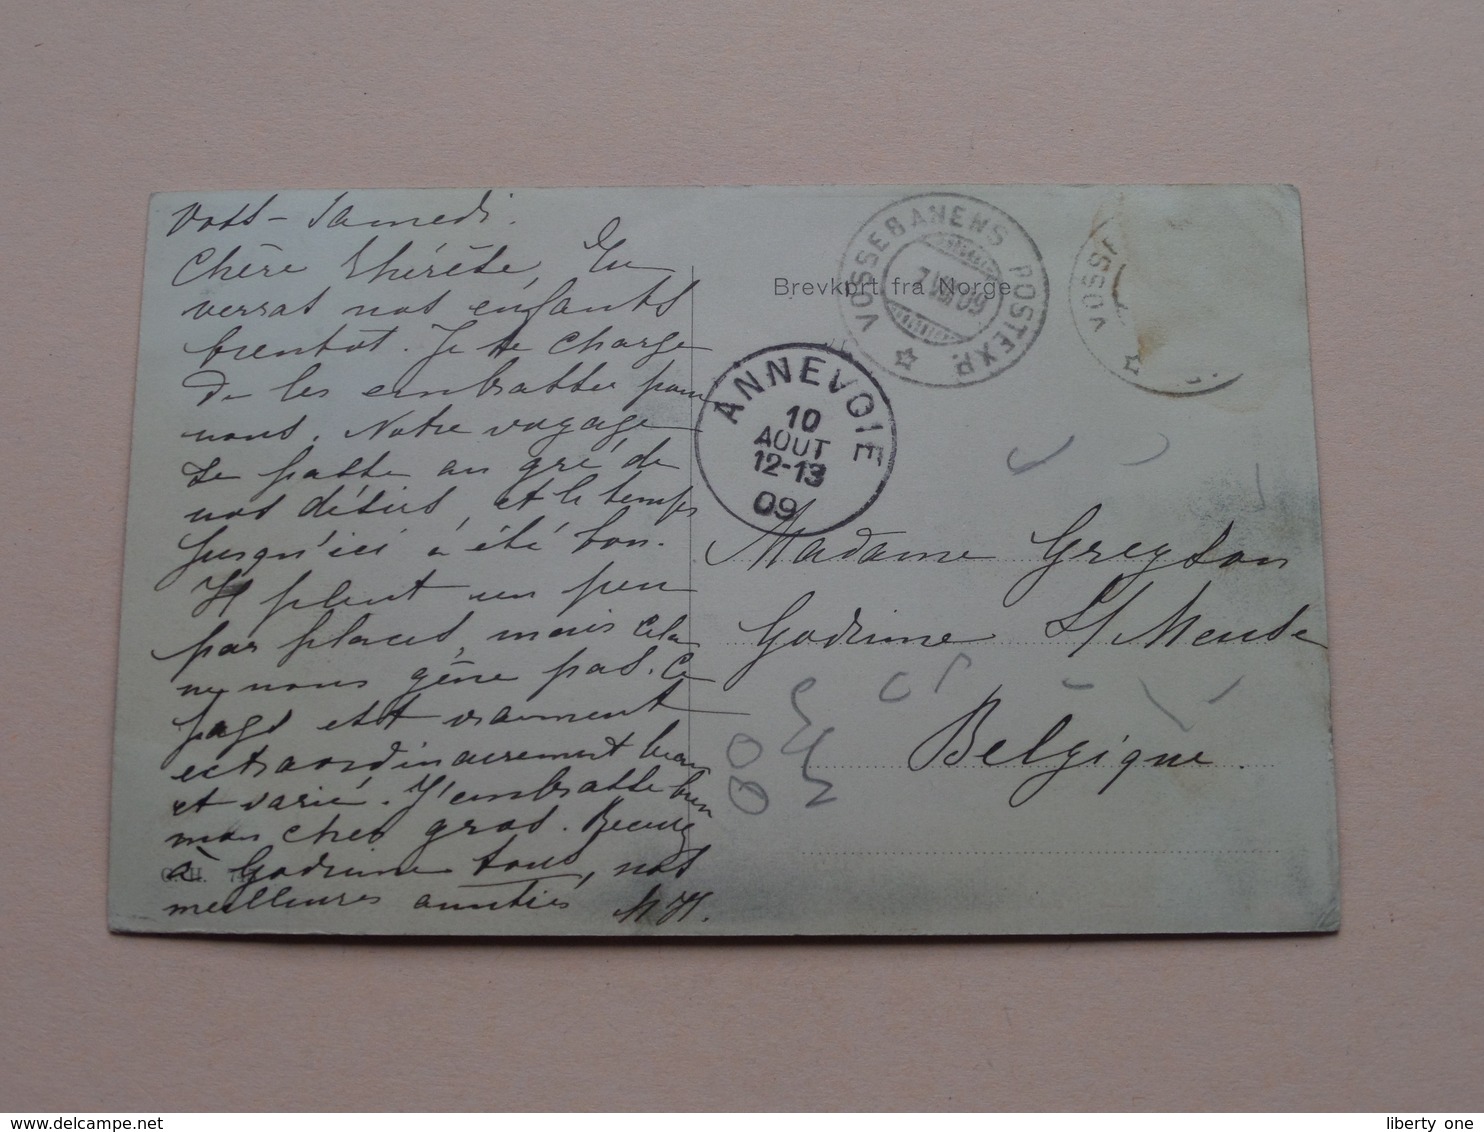 Voss - Samedi.
Chère Thérèse, Tu
verras nos enfants
bientôt. Je te charge
de les embrasser pour
nous. Notre voyage
se passe au gré de
nos désirs, et le temps
jusqu'ici a été bon.
Il pleut un peu
par places, mais cela
ne nous gêne pas. Ce
pays est vraiment
extraordinairement beau
et varié. J'embrasse bien
mon cher gros. Recevez
à Godinne tous, nos
meilleures amitiés M H.
Brevkort fra Norge.
VOSSEBANENS POSTEXP.
7 VIII 09
VOSSE
ANNEVOIE
10
AOUT
12-13
09
Madame Greyson
Godinne s/ Meuse
Belgique.
liberty one
delcampe.net